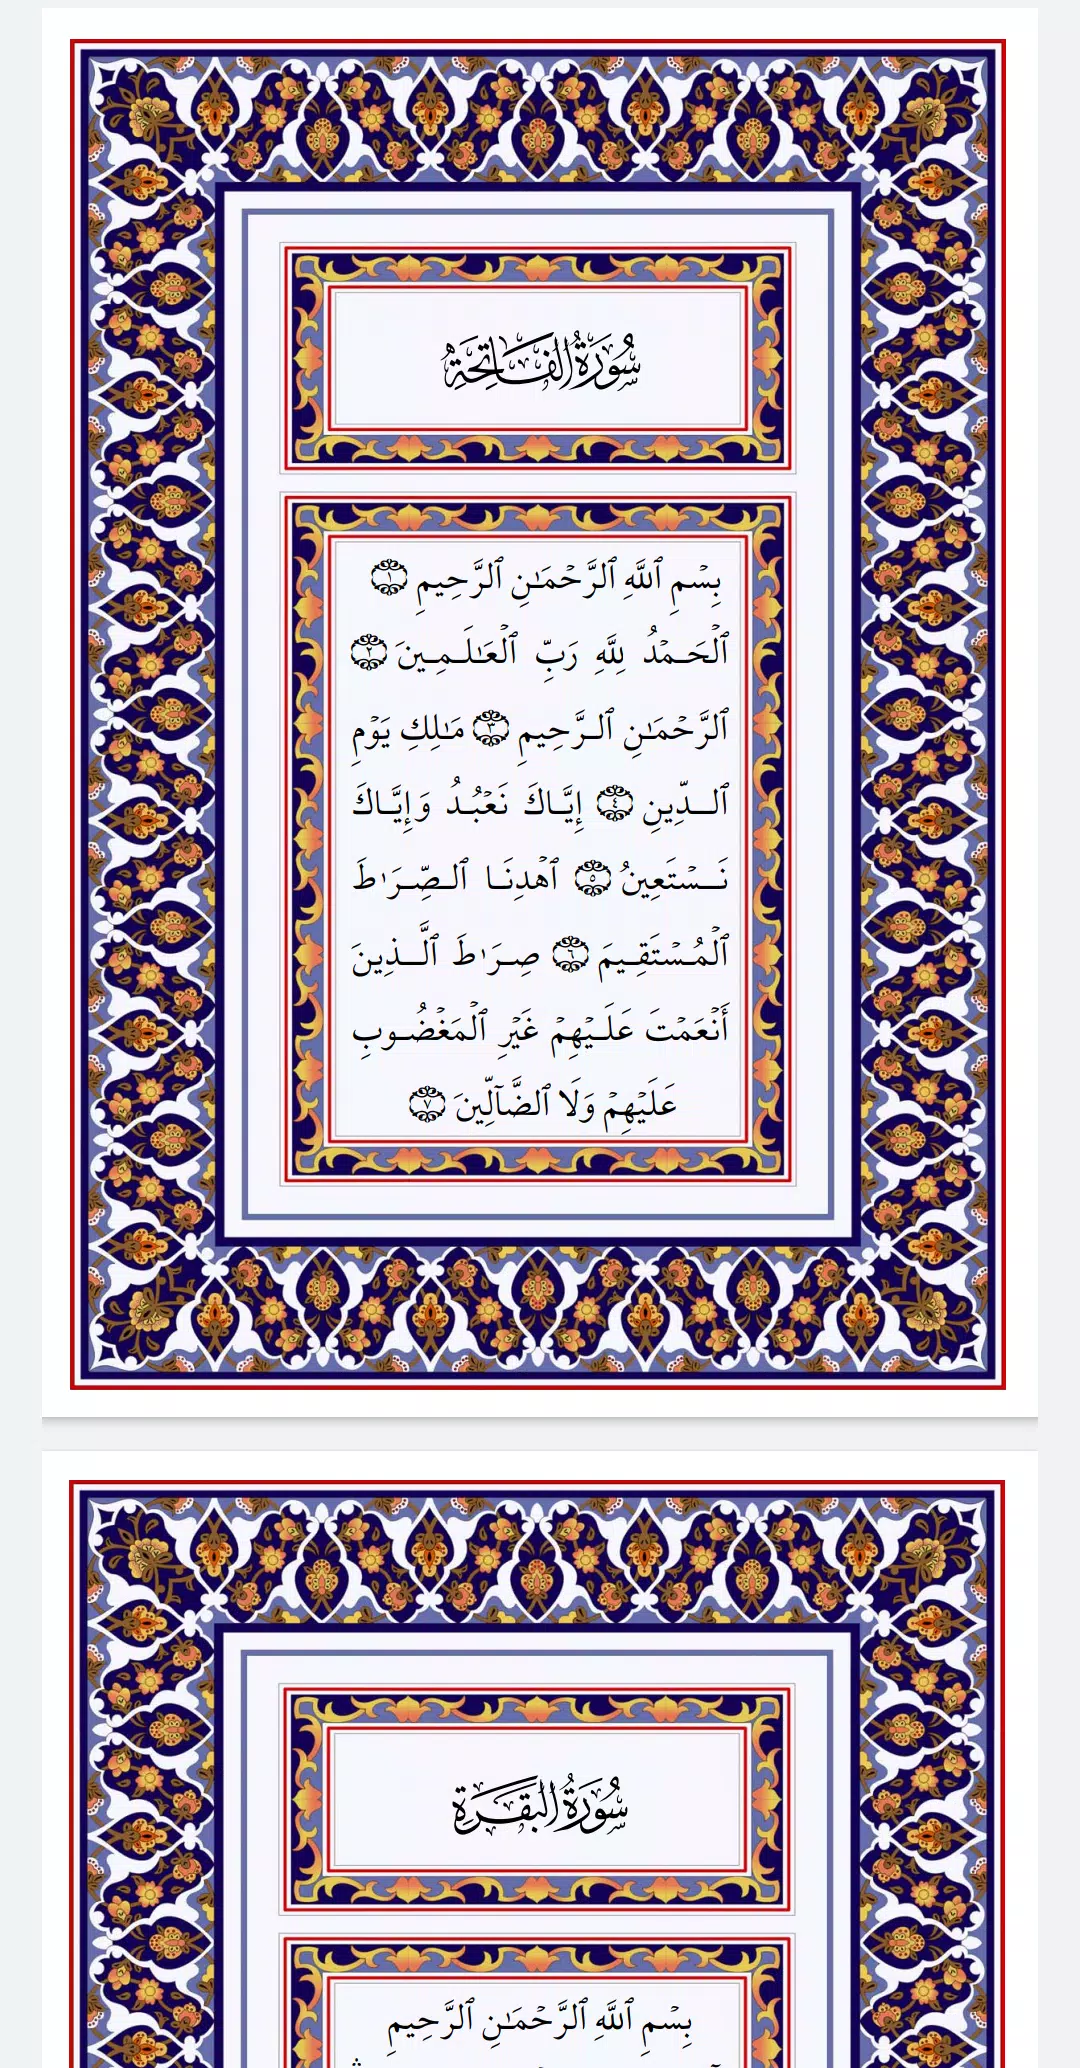 سُورَةُ الفَاتِحَةِ
بِسْمِ ٱللَّهِ ٱلرَّحْمَـٰنِ ٱلرَّحِيمِ ١
ٱلْحَمْدُ لِلَّهِ رَبِّ ٱلْعَـٰلَمِينَ ٢
ٱلرَّحْمَـٰنِ ٱلرَّحِيمِ ٣ مَـٰلِكِ يَوْمِ
ٱلدِّينِ ٤ إِيَّاكَ نَعْبُدُ وَإِيَّاكَ
نَسْتَعِينُ ٥ ٱهْدِنَا ٱلصِّرَٰطَ
ٱلْمُسْتَقِيمَ ٦ صِرَٰطَ ٱلَّذِينَ
أَنْعَمْتَ عَلَيْهِمْ غَيْرِ ٱلْمَغْضُوبِ
عَلَيْهِمْ وَلَا ٱلضَّآلِّينَ ٧
سُورَةُ البَقَرَةِ
بِسْمِ ٱللَّهِ ٱلرَّحْمَـٰنِ ٱلرَّحِيمِ